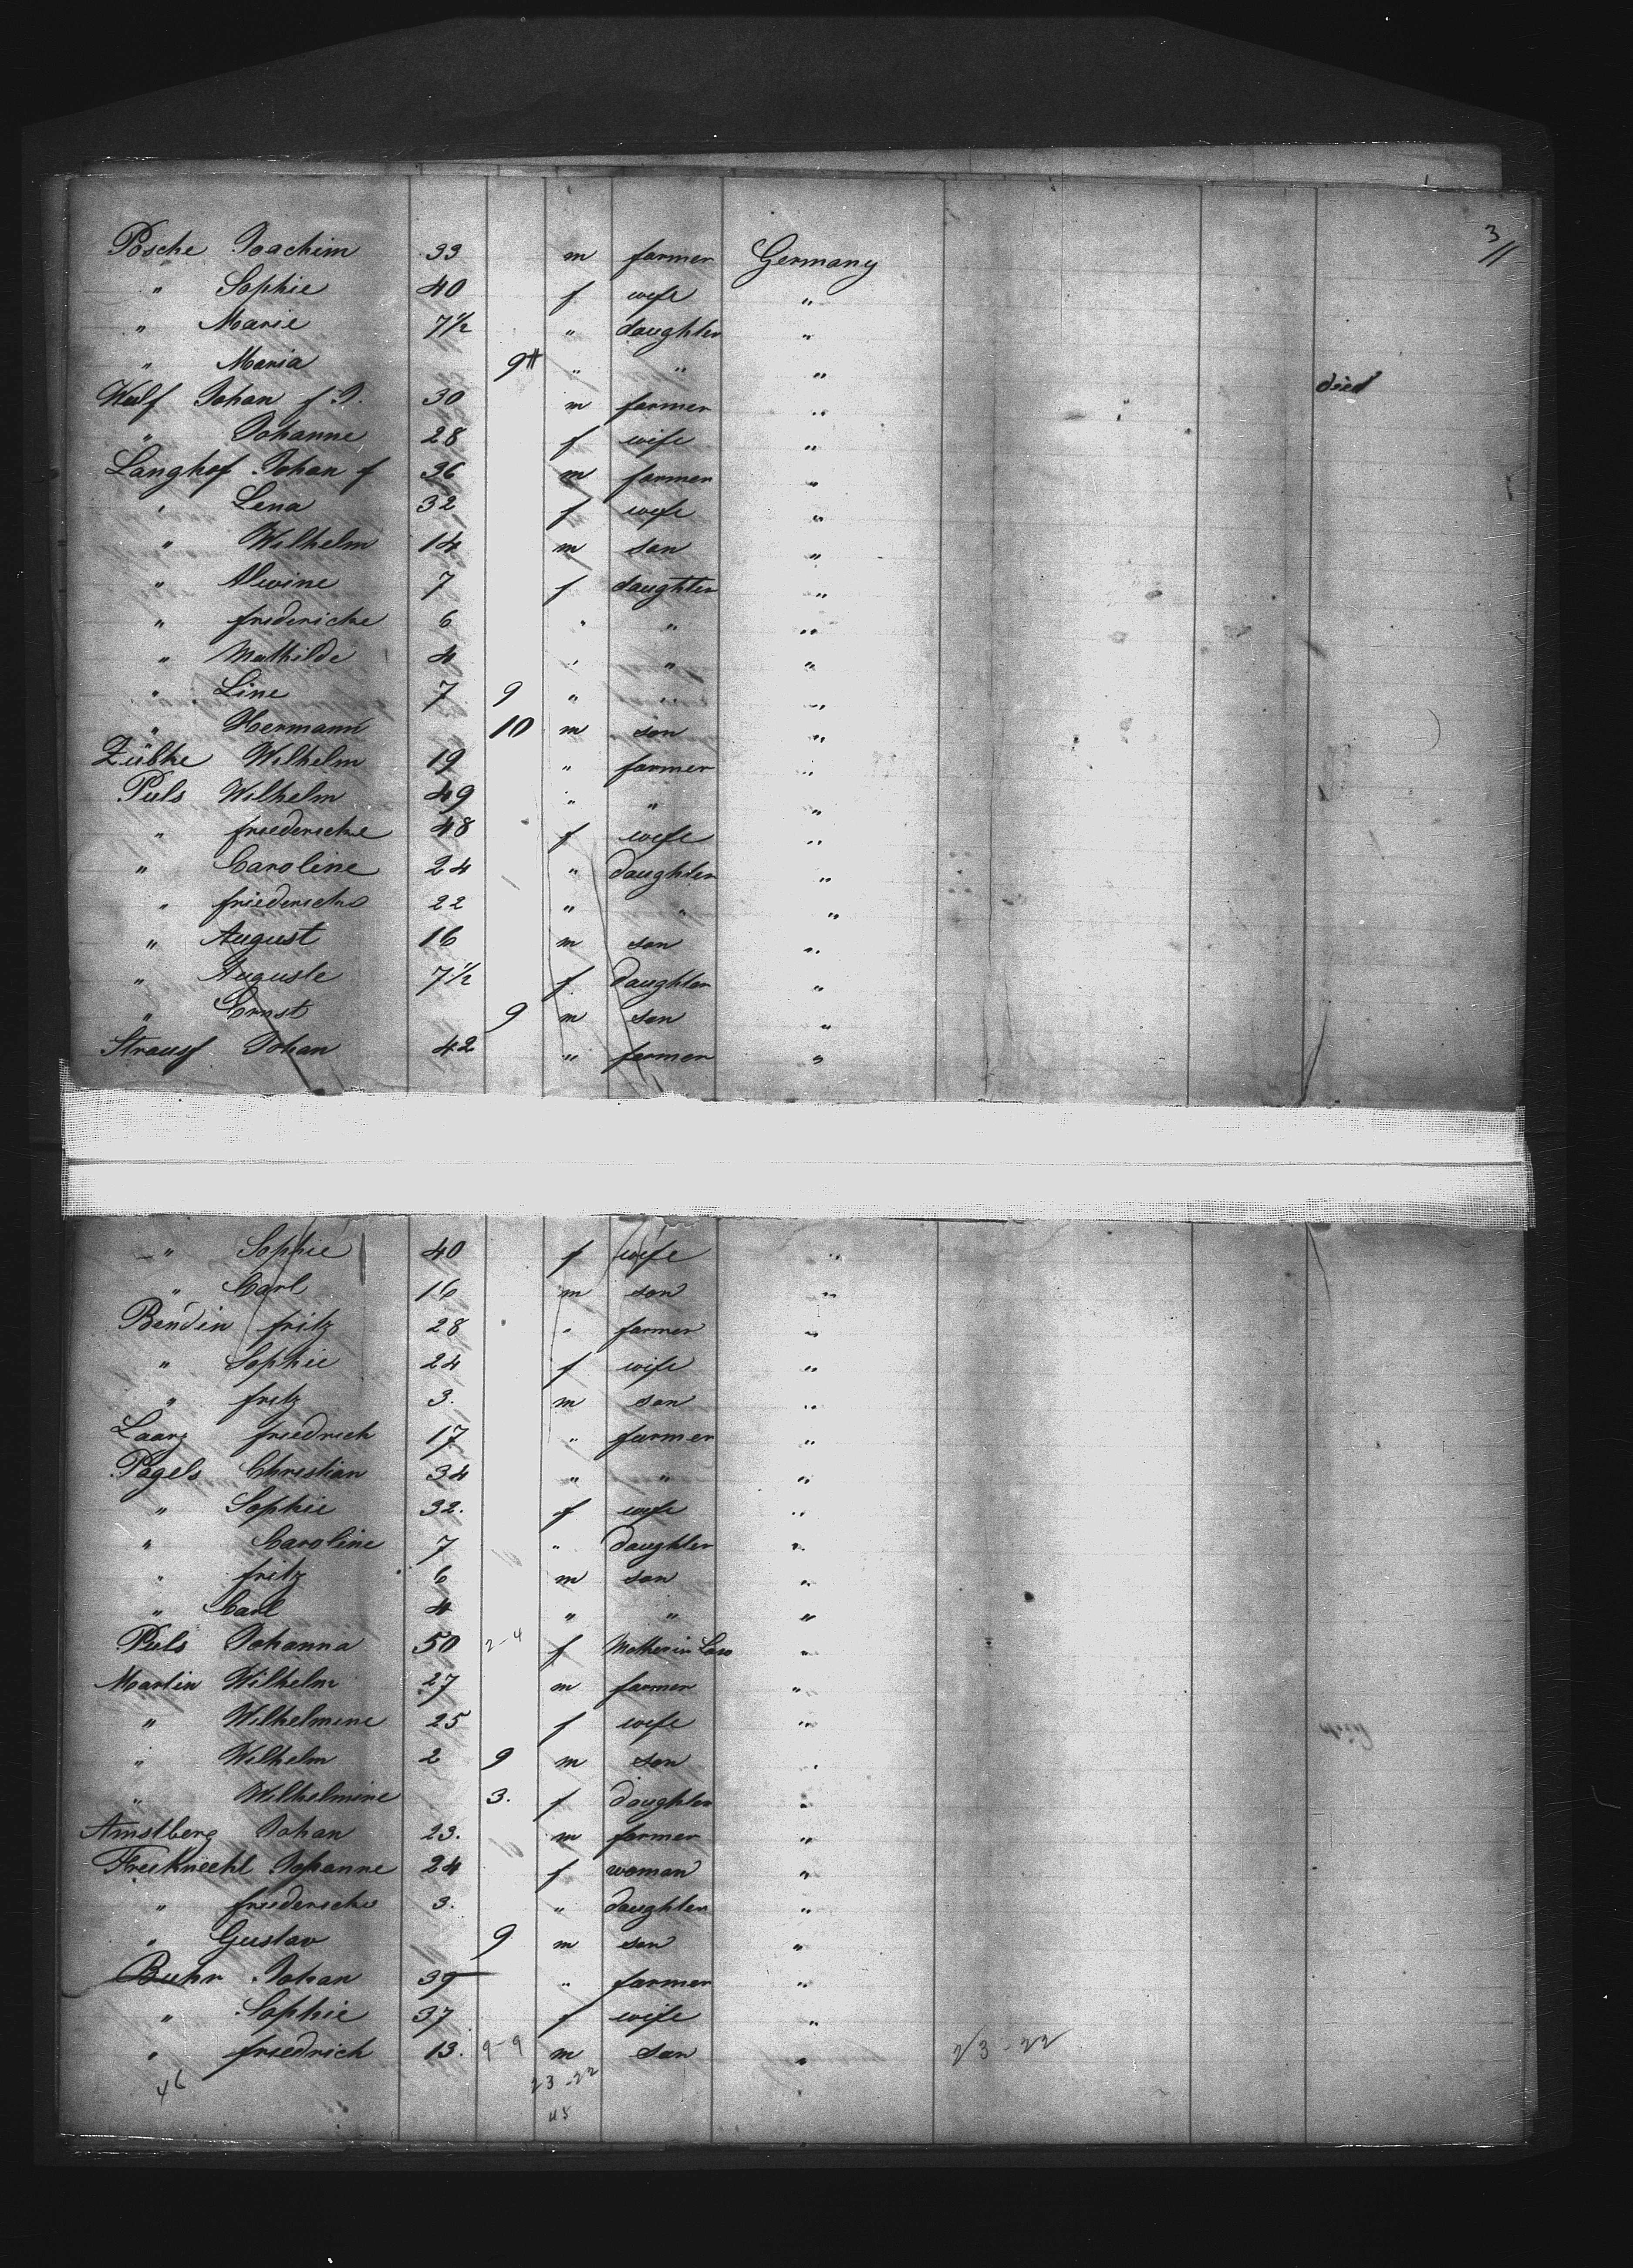 3/11
Posche Joachim 33 m farmer Germany
" Sophie 40 f wife "
" Marie 7½ " daughter "
" Maria 9 " " " died
Wulf Johan f J. 30 m farmer "
" Johanne 28 f wife "
Langhof Johan f 36 m farmer "
" Lena 32 f wife "
" Wilhelm 14 m son "
" Alwine 7 f daughter "
" fredericke 6 " " "
" Mathilde 4 " " "
" Line 7 9 " " "
" Hermann 10 m son "
Zülke Wilhelm 19 " farmer "
Puls Wilhelm 49 " " "
" friedericke 48 f wife "
" Caroline 24 " daughter "
" friedericke 22 " " "
" August 16 m son "
" Auguste 7½ f daughter "
" Ernst 9 m son "
Strauss Johan 42 " farmer "
" Sophie 40 f wife "
" Carl 16 m son "
Bendin fritz 28 " farmer "
" Sophie 24 f wife "
" fritz 3. m son "
Laarz friedrich 17 " farmer "
Pagels Christian 34 " " "
" Sophie 32. f wife "
" Caroline 7 " daughter "
" fritz 6 m son "
" Carl 4 " " "
Puls Johanna 50 2-4 f Mother in Law "
Martin Wilhelm 27 m farmer "
" Wilhelmine 25 f wife "
" Wilhelm 2 9 m son "
" Wilhelmine 3. f daughter "
Amstberg Johan 23. m farmer "
Freiknecht Johanne 24 f woman "
" friedericke 3. " daughter "
" Gustav 9 m son "
Buhr Johan 39 " farmer "
" Sophie 37 f wife "
" friedrich 13. 9-9 m son " 23-22
46 23-22
45